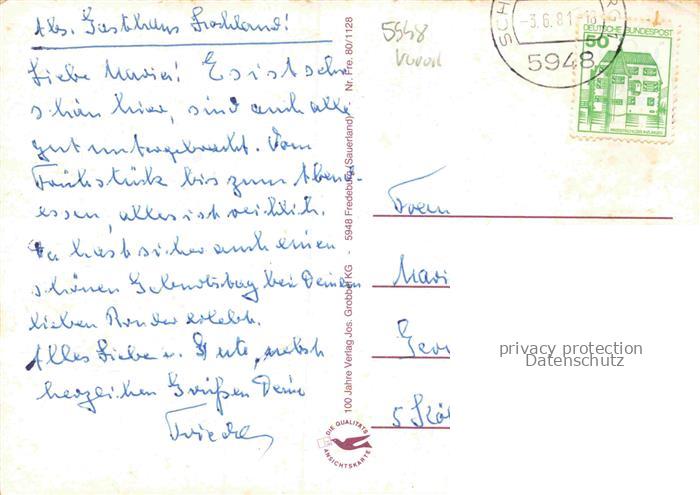 Abs. Gasthaus Hochland!
Liebe Maria! Es ist sehr
schön hier, sind auch alle
gut untergebracht. Vom
Frühstück bis zum Abend-
essen, alles ist reichlich.
Du hast sicher auch einen
schönen Geburtstag bei Deinem
lieben Bruder erlebt.
Alles Liebe u. Gute, nebst
herzlichen Grüßen Deine
100 Jahre Verlag Jos. Grobbel KG 5948 Fredeburg (Sauerland) Nr. Fre. 80/1128
DIE QUALITÄTS
ANSICHTSKARTE
5948
SCH
-3.6.81-18
5948
DEUTSCHE BUNDESPOST
50
Frau
Mari
5 Köl
privacy protection
Datenschutz